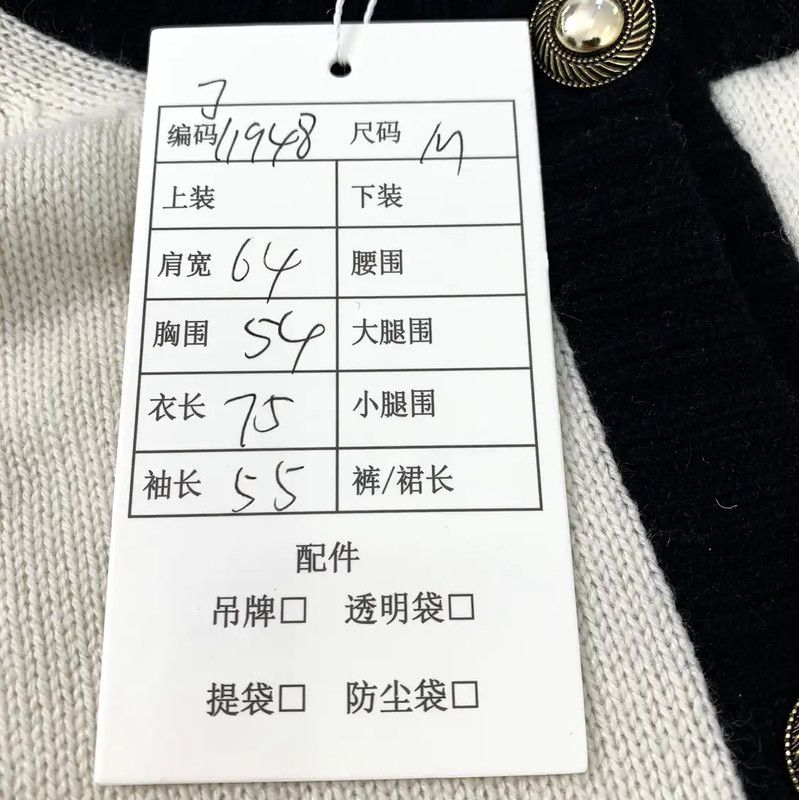 J
编码 11948 尺码 M
上装 下装
肩宽 64 腰围
胸围 54 大腿围
衣长 75 小腿围
袖长 55 裤/裙长
配件
吊牌□ 透明袋□
提袋□ 防尘袋□